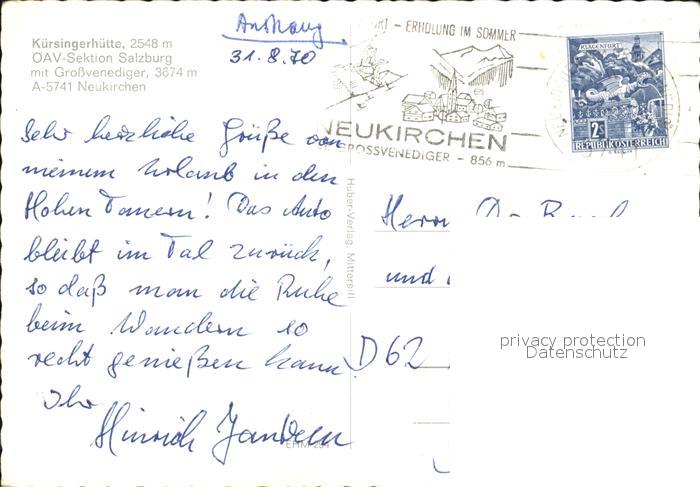 Kürsingerhütte, 2548 m
ÖAV-Sektion Salzburg
mit Großvenediger, 3674 m
A-5741 Neukirchen
31.8.70
Sehr herzliche Grüße von
meinem Urlaub in den
Hohen Tauern! Das Auto
bleibt im Tal zurück,
so daß man die Ruhe
beim Wandern so
recht genießen kann.
Ihr
Hinrich
EHM
Huber-Verlag, Mittersill
- ERHOLUNG IM SOMMER
NEUKIRCHEN
GROSSVENEDIGER - 856 m
KLAGENFURT
2S
REPUBLIK ÖSTERREICH
Herrn
und
D 62
privacy protection
Datenschutz